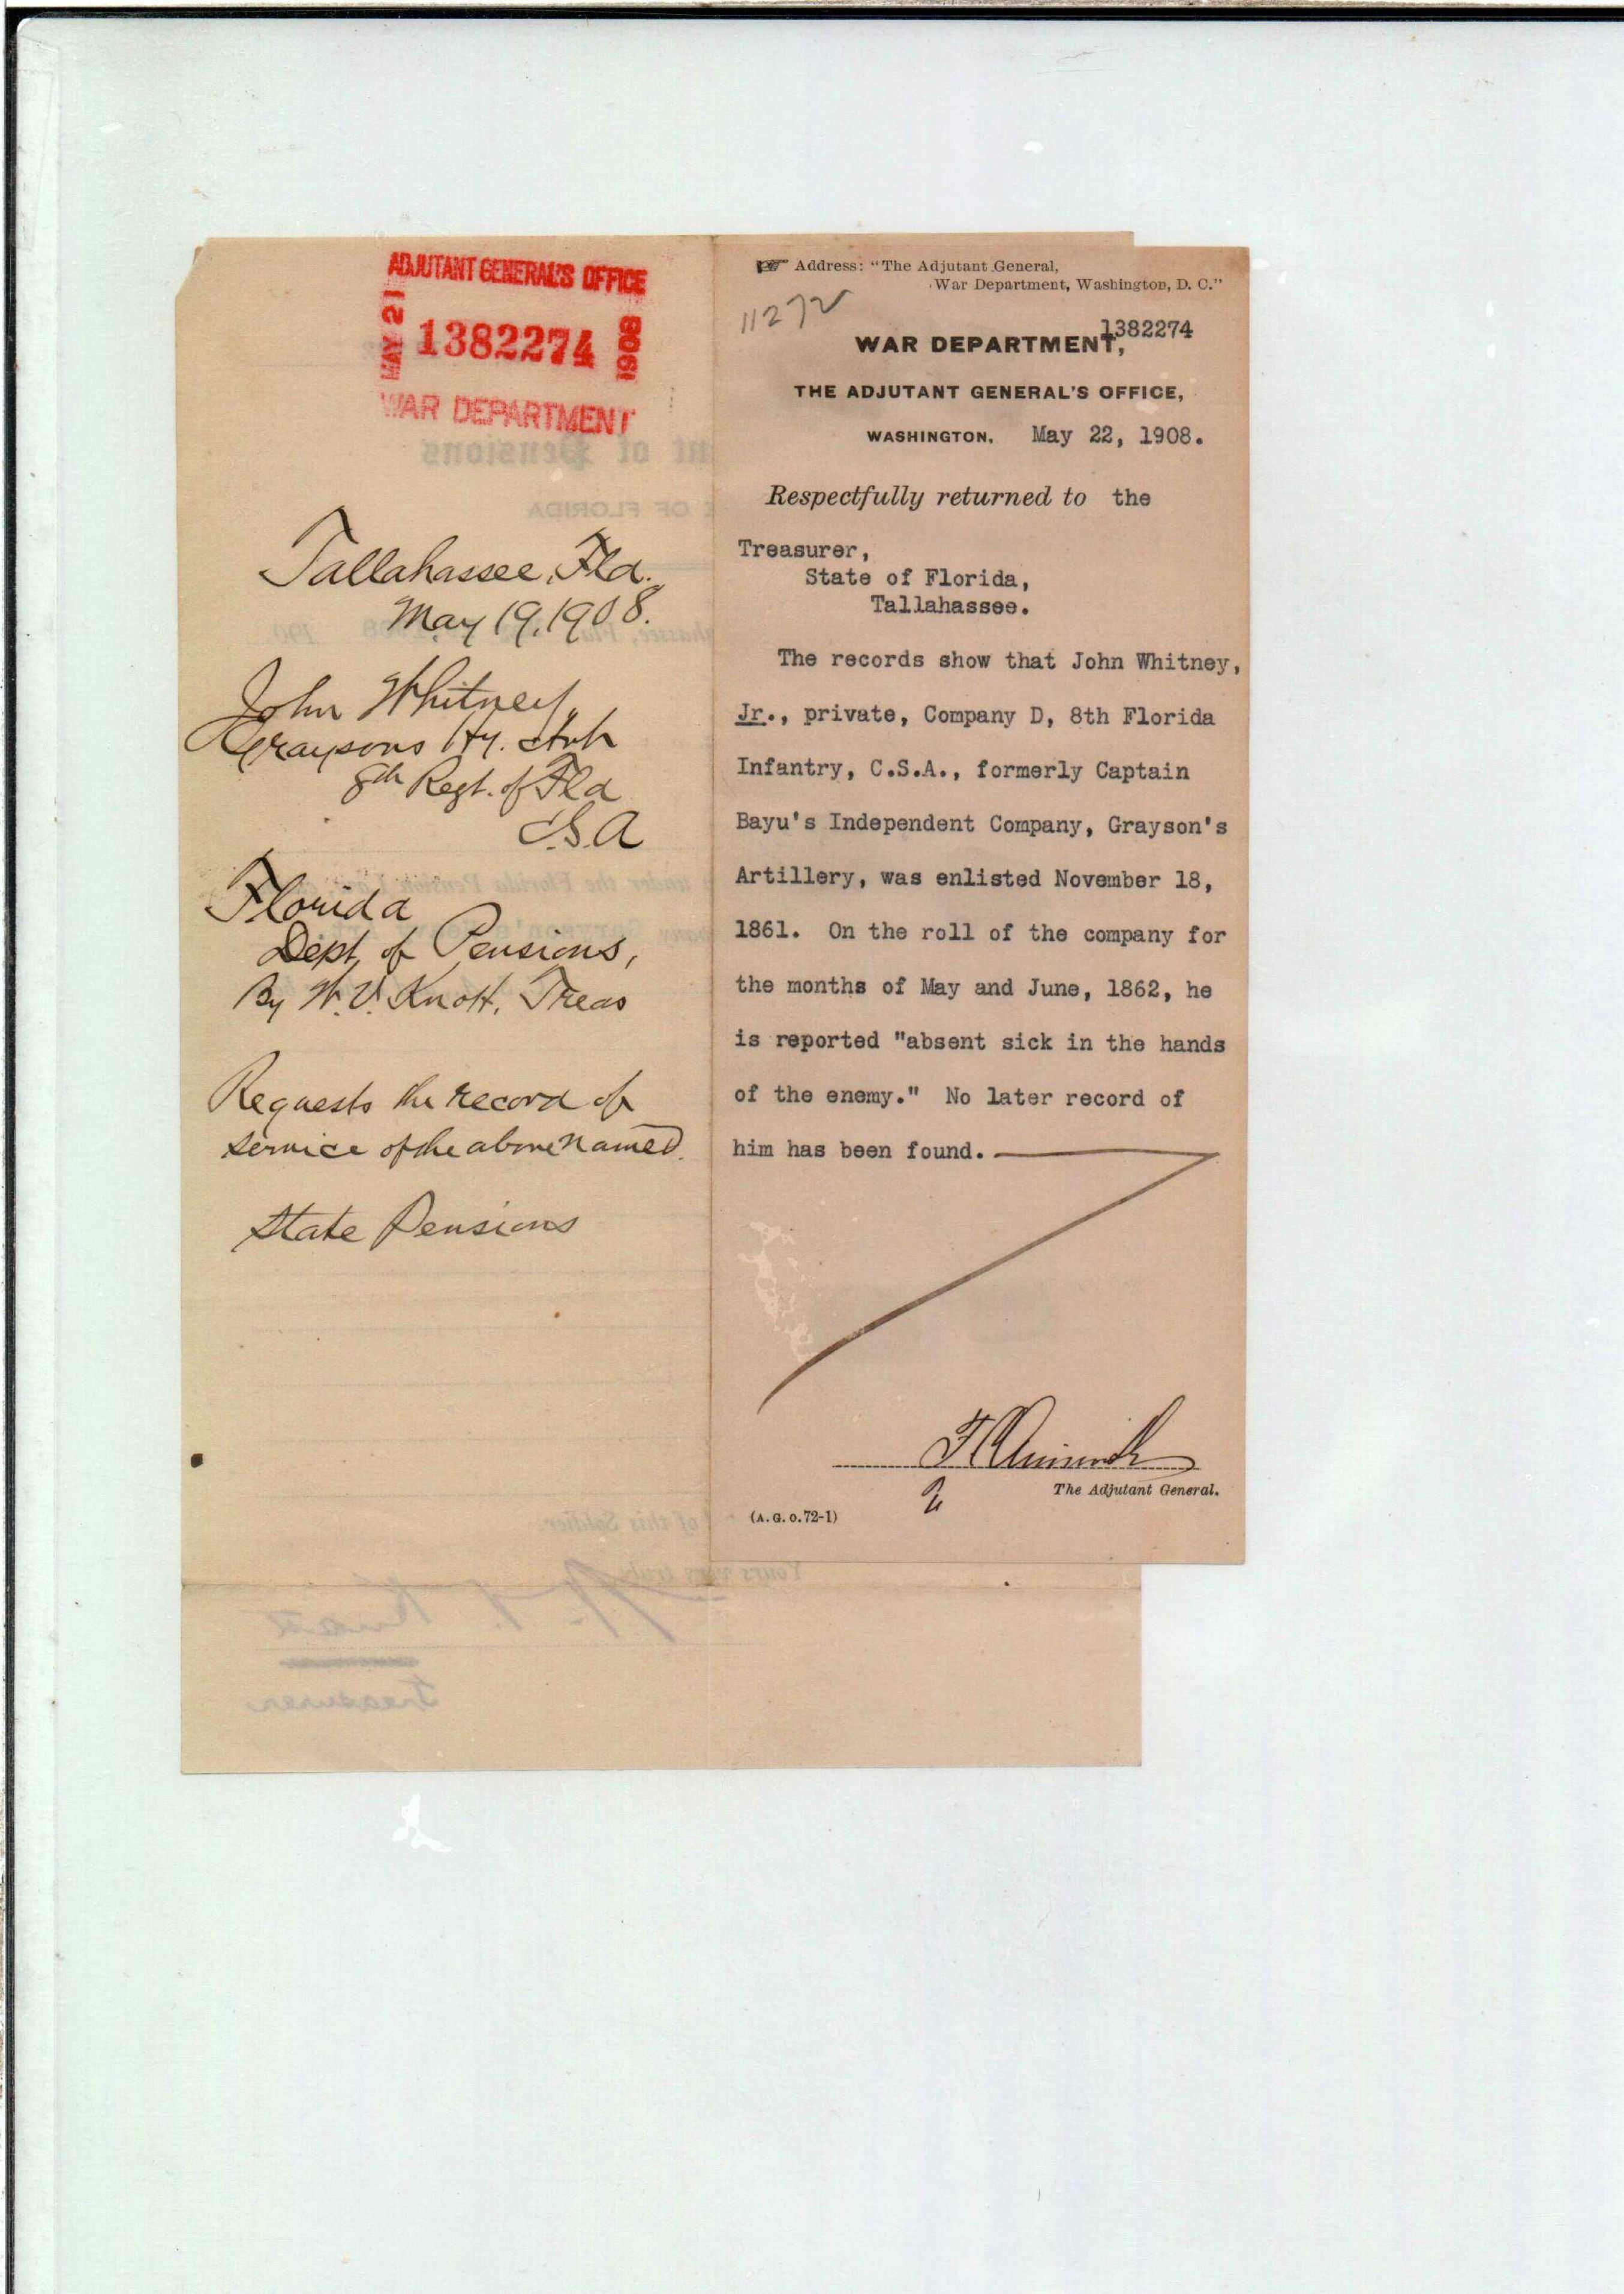 ADJUTANT GENERAL'S OFFICE
MAY 21 1382274 1908
WAR DEPARTMENT
Tallahassee, Fla.
May 19, 1908.
John Whitney,
Graysons Hy. Arty
8th Regt. of Fla
C.S.A
Florida
Dept, of Pensions,
By W. V. Knott, Treas
Requests the record of
service of the above named.
State Pensions
Address: "The Adjutant General,
War Department, Washington, D. C."
11272
1382274
WAR DEPARTMENT,
THE ADJUTANT GENERAL'S OFFICE,
WASHINGTON, May 22, 1908.
Respectfully returned to the
Treasurer,
State of Florida,
Tallahassee.
The records show that John Whitney,
Jr., private, Company D, 8th Florida
Infantry, C.S.A., formerly Captain
Bayu's Independent Company, Grayson's
Artillery, was enlisted November 18,
1861. On the roll of the company for
the months of May and June, 1862, he
is reported "absent sick in the hands
of the enemy." No later record of
him has been found.
The Adjutant General.
(A. G. O. 72-1)